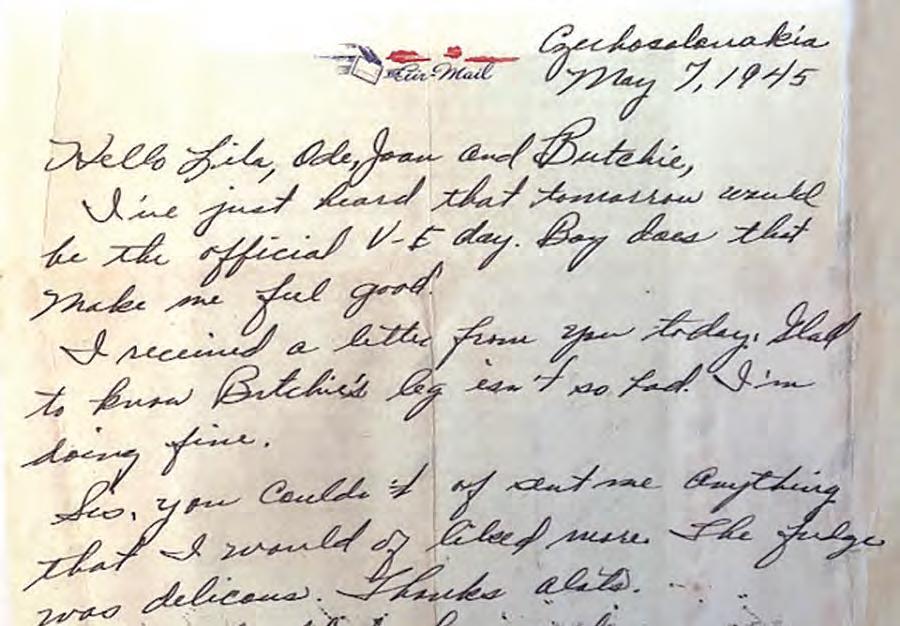 Air-Mail
Czechosolonakia
May 7, 1945
Hello Lila, Ode, Joan and Butchie,
I've just heard that tomorrow would
be the official V-E day. Boy does that
make me feel good.
I received a letter from you today. Glad
to know Butchie's leg isn't so bad. I'm
doing fine.
Sis, you couldn't of sent me anything
that I would of liked more. The fudge
was delicous. Thanks alots.